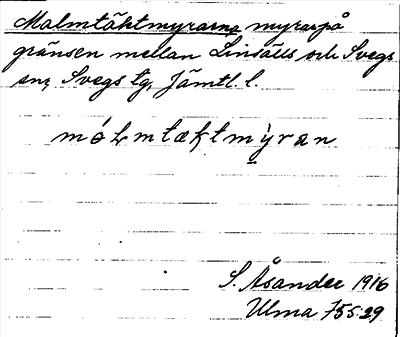 Malmtäktmyrarna myrar på
gränsen mellan Linsälls och Svegs
snr, Svegs tg, Jämtl. l.
mólmtæktmỳran
S. Åsander 1916
Ulma 755:29